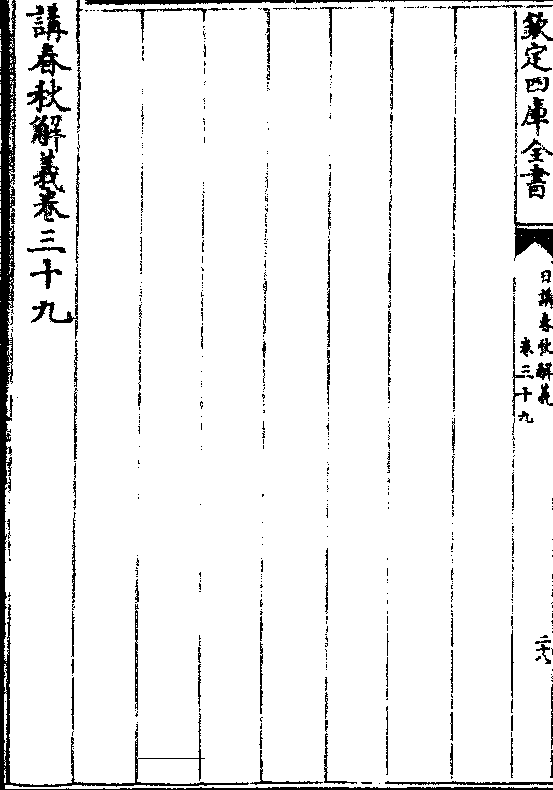 欽定四庫全書
日講春秋解義
卷三十九
二十八
講春秋解義卷三十九